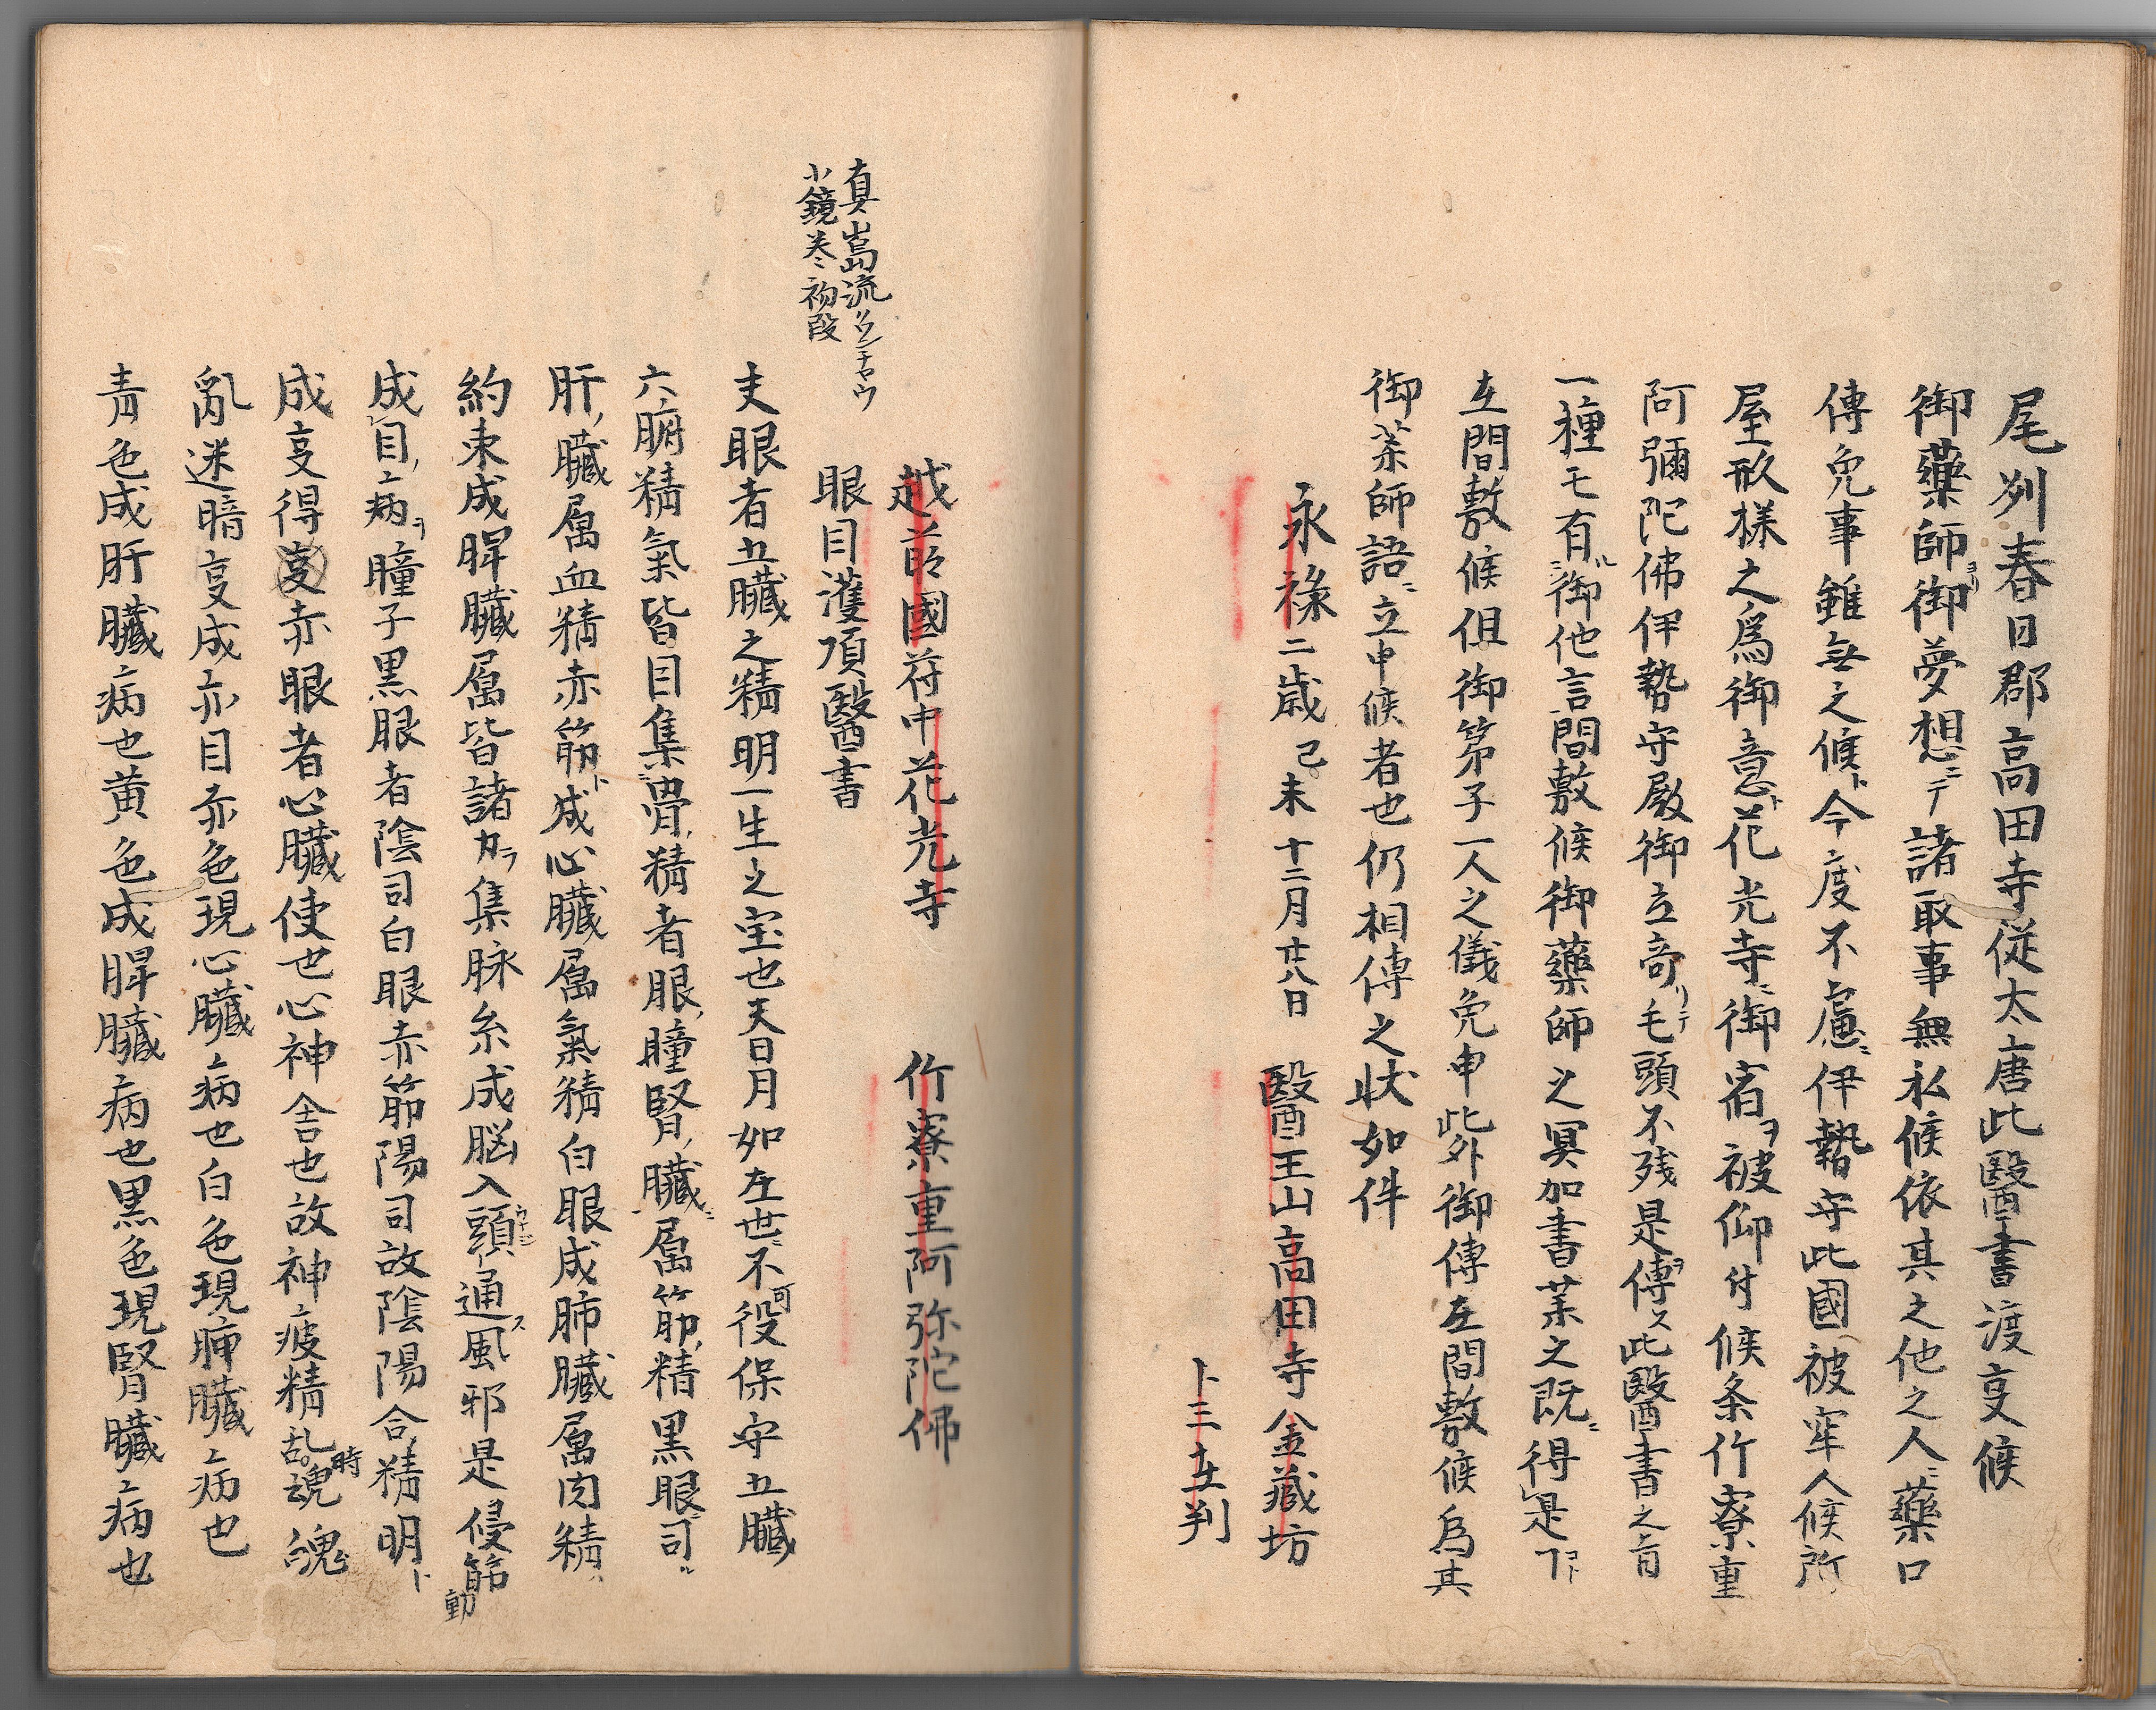 尾刕春日郡高田寺従太唐此醫書渡㕝候
御藥師ヨリ御夢想ニテ諸取事無私候依其之他之人ニ藥口
傳免事雖無之候ト今度不慮ニ伊勢守此國被牢人候所
屋形様之為御意ト花光寺ニ御宿ヲ被仰付候条竹寮重
阿彌陀佛伊勢守殿御立竒リテ毛頭不残是傳ヲ此醫書之旨
一種モ有御他言間敷候御藥師之冥加書葉之既ニ得是下
左間敷候但御第子一人之儀免申此外御傳左間敷候為其
御薬師語ニ立申候者也仍相傳之状如件
永禄二歳己未十二月廿八日 醫王山高田寺金藏坊
卜三在判
越前國苻中花光寺 竹寮重阿弥陀佛
眼目護項醫書
真嶋流
小鏡巻初段
夫眼者五臓之精明一生之宝也天日月如左世ニ不可役保守五臓
六腑精氣皆目集ニ骨精者眼瞳腎臓ニ属筋精黒眼司
肝臓属血精赤筋ト成心臓属氣精白眼成肺臓属肉精
約束成脾臓属皆諸力ヲ集脉糸成脳入頭通ス風邪是侵筋動
成目病ヲ瞳子黒眼者陰司白眼赤筋陽司故陰陽合精明ト
成㕝得㕝赤眼者心臓使也心神舎也故神疲精乱時魂魄
亂迷暗㕝成亦目赤色現心臓病也白色現肺臓病也
青色成肝臓病也黄色成脾臓病也黒色現腎臓病也